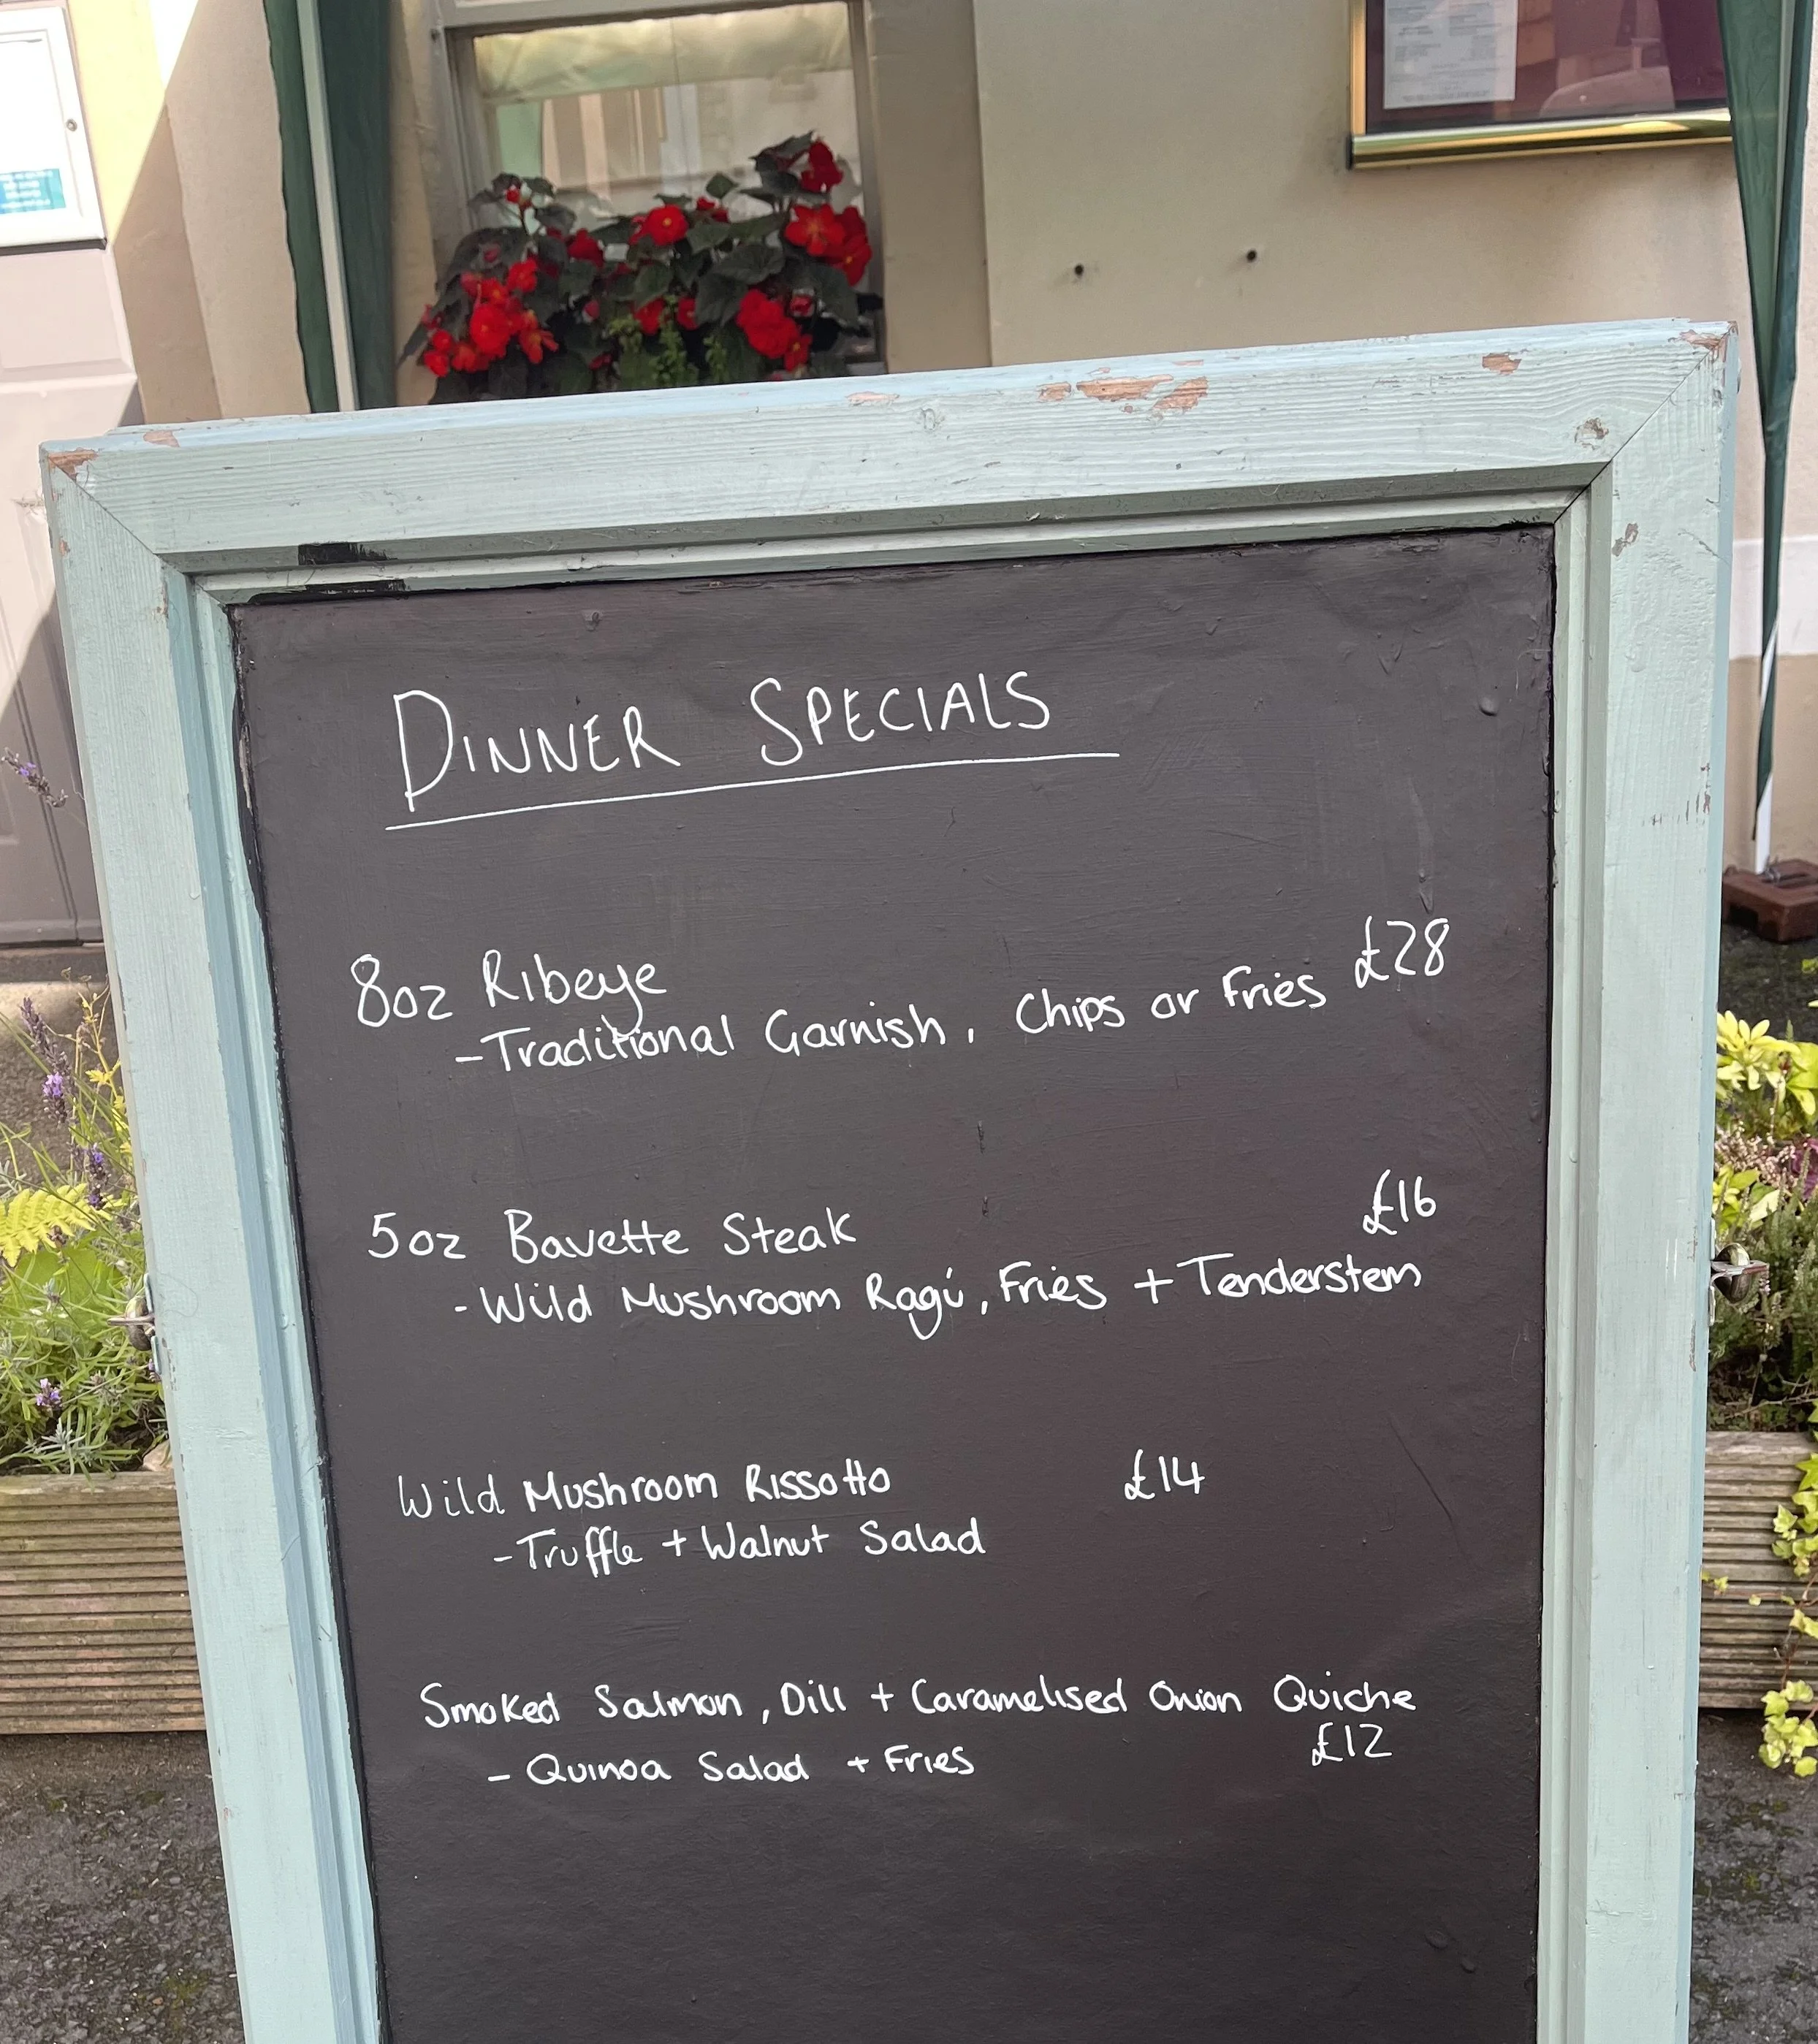 DINNER SPECIALS
8oz Ribeye £28
-Traditional Garnish, Chips or Fries
5oz Bavette Steak £16
- Wild Mushroom Ragú, Fries + Tenderstem
Wild Mushroom Rissotto £14
-Truffle + Walnut Salad
Smoked Salmon, Dill + Caramelised Onion Quiche
- Quinoa Salad + Fries £12